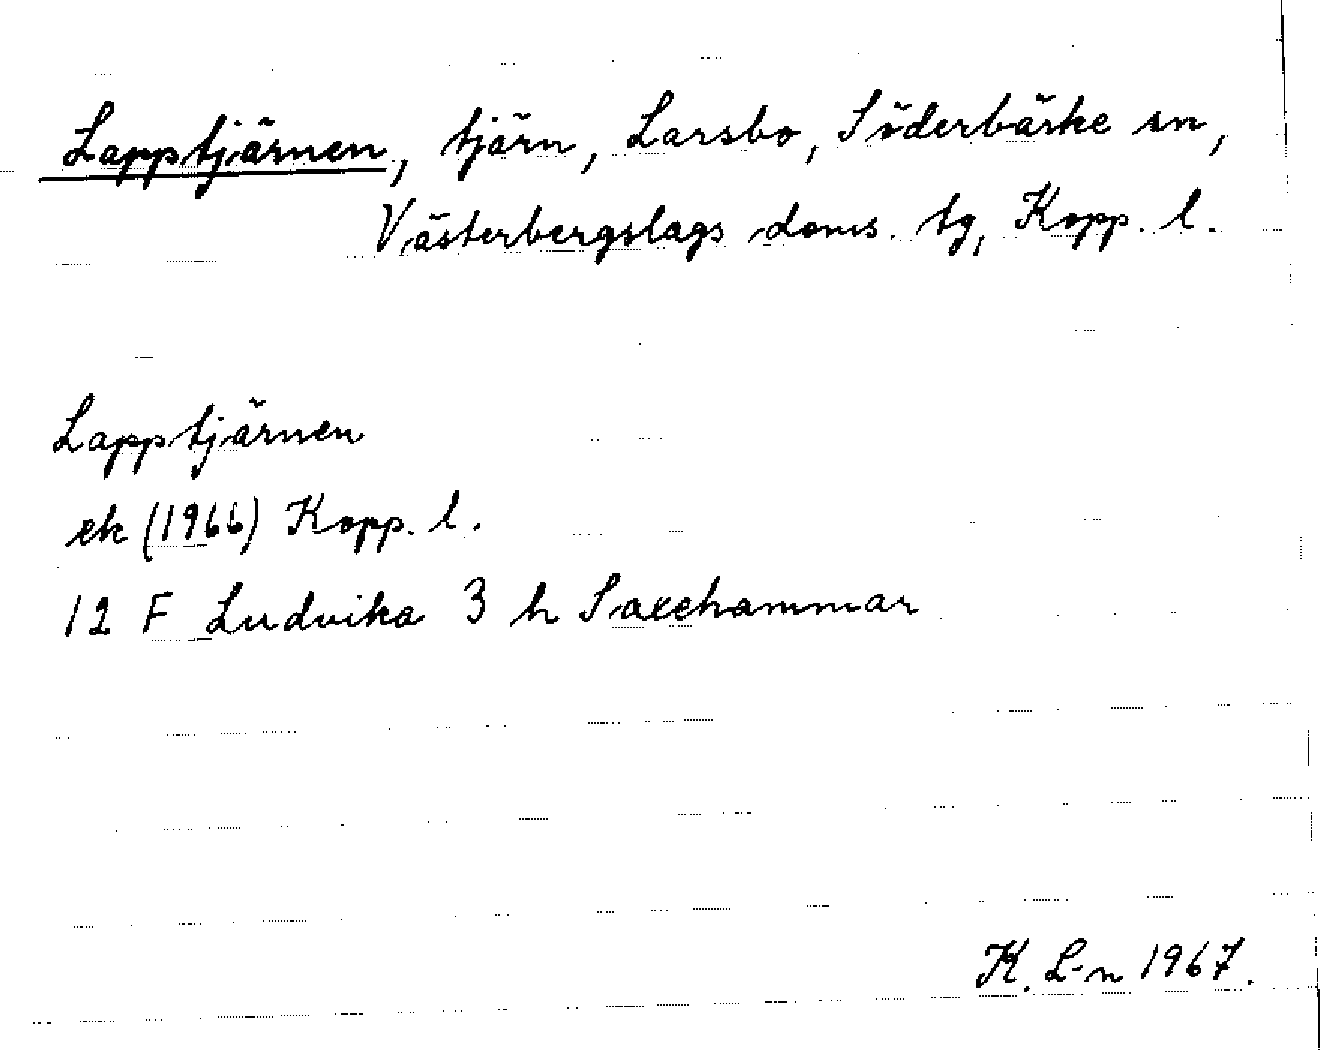 Lapptjärnen, tjärn, Larsbo, Söderbärke sn,
Västerbergslags doms. tg, Kopp. l.
Lapptjärnen
ek (1966) Kopp. l.
12 F Ludvika 3 h Saxehammar
K. L-n 1967.